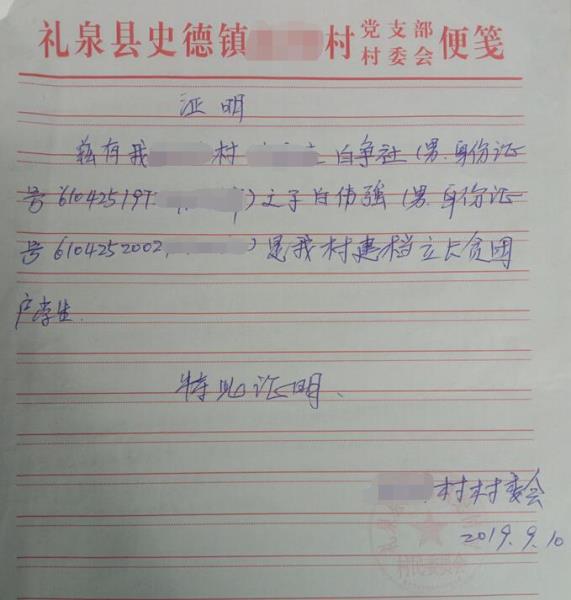 礼泉县史德镇 村 党支部 村委会 便笺
证明
兹有我 村 白争社(男.身份证
号610425197 )之子白伟强(男.身份证
号6104252002 )是我村建档立卡贫困
户学生.
特此证明、
村村委会
2019.9.10
村民委员会